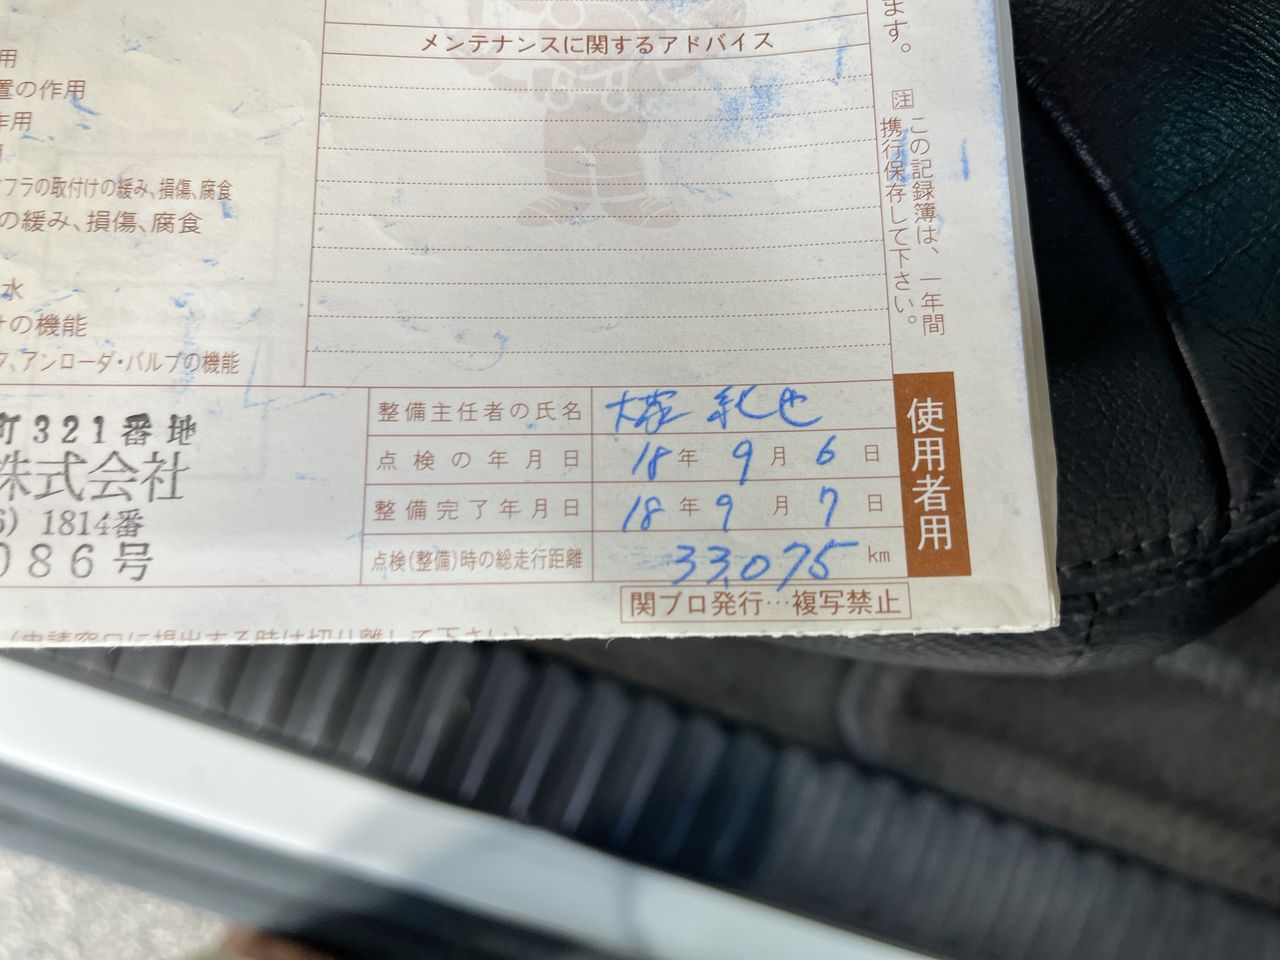 用
置の作用
作用
フラの取付けの緩み、損傷、腐食
の緩み、損傷、腐食
水
の機能
アンローダ・バルブの機能
メンテナンスに関するアドバイス
ます。
注 この記録簿は、一年間
携行保存して下さい。
町321番地
株式会社
6) 1814番
086号
整備主任者の氏名 大塚 也
点検の年月日 18年 9月 6日
整備完了年月日 18年 9月 7日
点検(整備)時の総走行距離 33,075 km
使用者用
関ブロ発行…複写禁止
(申請窓口に提出する時は切り離して下さい)